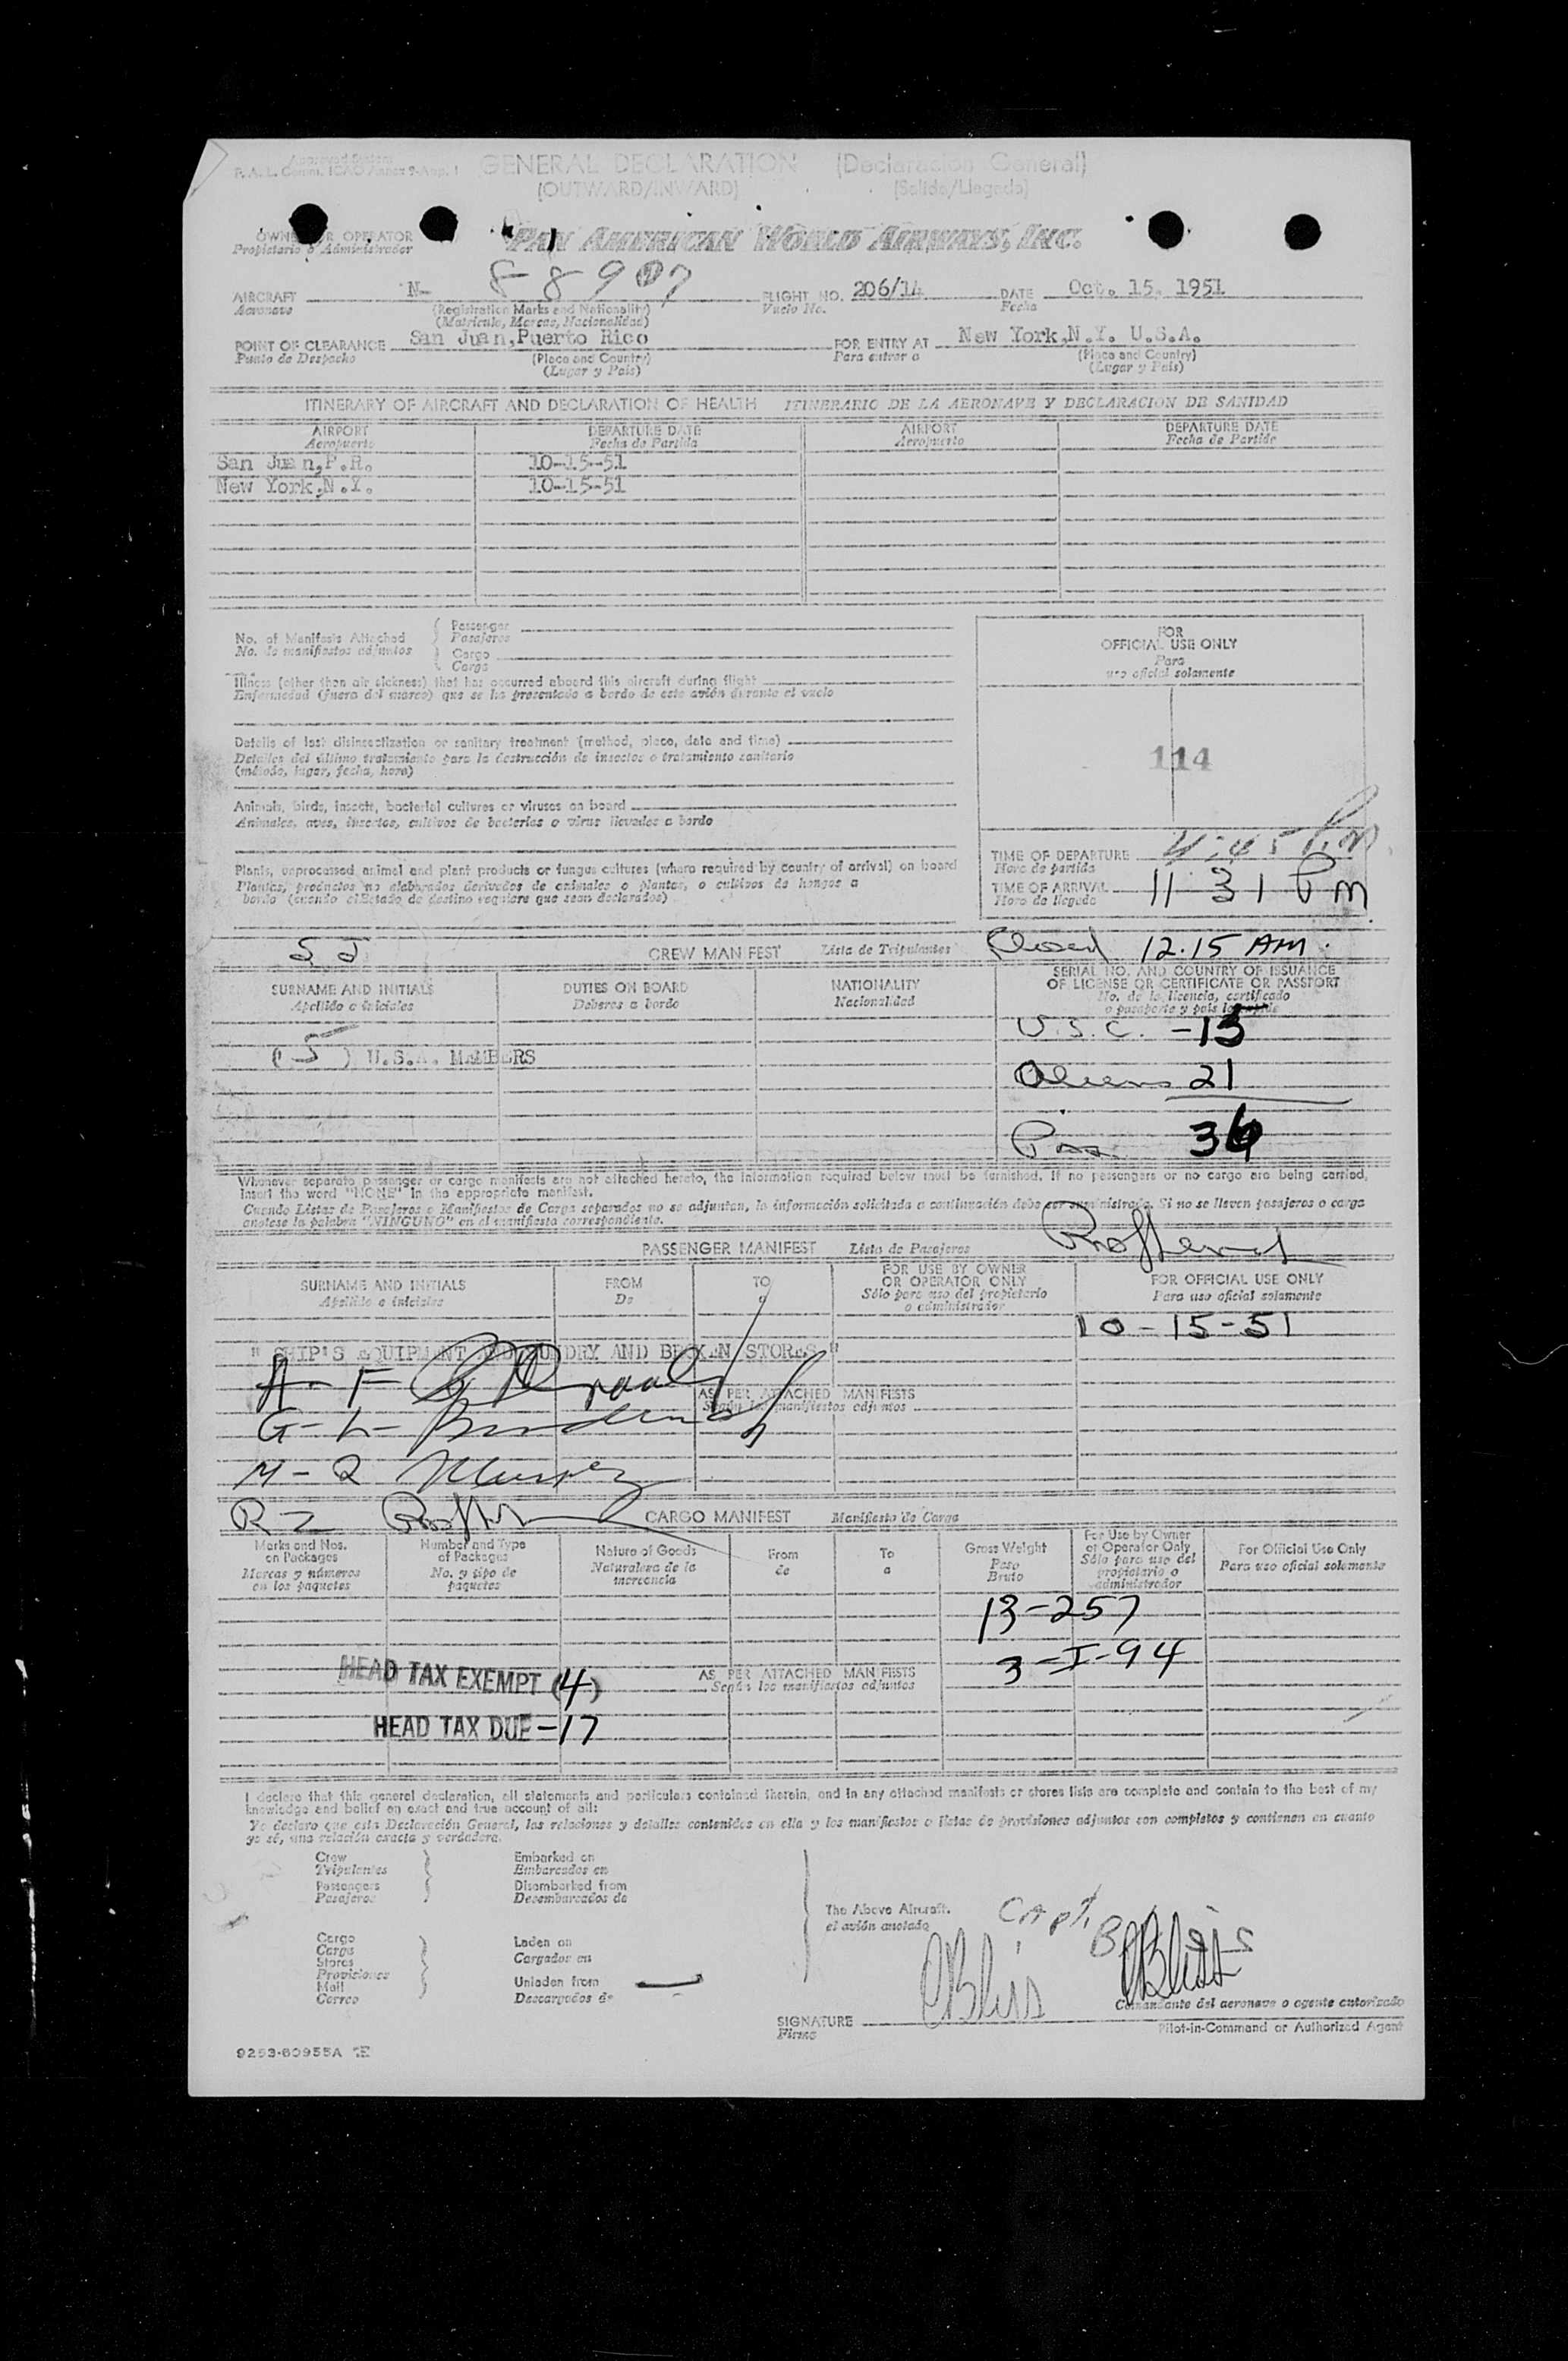 Approved System
F. A. L. Comm. ICAO Annex 9-App. 1
GENERAL DECLARATION (Declaración General)
(OUTWARD/INWARD) (Salida/Llegada)
OWNER OR OPERATOR
Propietario o Administrador
PAN AMERICAN WORLD AIRWAYS, INC.
AIRCRAFT N- 88907 FLIGHT NO. 206/14 DATE Oct. 15, 1951
Aeronave (Registration Marks and Nationality) Vuelo No. Fecha
(Matricula, Marcas, Nacionalidad)
POINT OF CLEARANCE San Juan,Puerto Rico FOR ENTRY AT New York,N.Y. U.S.A.
Punto de Despacho (Place and Country) Para entrar a (Place and Country)
(Lugar y País) (Lugar y País)
ITINERARY OF AIRCRAFT AND DECLARATION OF HEALTH ITINERARIO DE LA AERONAVE Y DECLARACION DE SANIDAD
AIRPORT DEPARTURE DATE AIRPORT DEPARTURE DATE
Aeropuerto Fecha de Partida Aeropuerto Fecha de Partida
San Juan,P.R. 10-15-51
New York,N.Y. 10-15-51
No. of Manifests Attached Passenger
No. de manifiestos adjuntos Pasajeros
Cargo
Carga
FOR
OFFICIAL USE ONLY
Para
uso oficial solamente
Illness (other than air sickness) that has occurred aboard this aircraft during flight
Enfermedad (fuera del mareo) que se ha presentado a bordo de este avión durante el vuelo
Details of last disinsectization or sanitary treatment (method, place, date and time)
Detalles del último tratamiento para la destrucción de insectos o tratamiento sanitario
(método, lugar, fecha, hora)
114
Animals, birds, insects, bacterial cultures or viruses on board
Animales, aves, insectos, cultivos de bacterias o virus llevados a bordo
Plants, unprocessed animal and plant products or fungus cultures (where required by country of arrival) on board
Plantas, productos no elaborados derivados de animales o plantas, o cultivos de hongos a
bordo (cuando el Estado de destino requiera que sean declarados)
TIME OF DEPARTURE 4:45 Pm
Hora de partida
TIME OF ARRIVAL 11 31 Pm
Hora de llegada
CREW MANIFEST Lista de Tripulantes Closed 12.15 AM.
SURNAME AND INITIALS DUTIES ON BOARD NATIONALITY SERIAL NO. AND COUNTRY OF ISSUANCE
OF LICENSE OR CERTIFICATE OR PASSPORT
Apellido e iniciales Deberes a bordo Nacionalidad No. de la licencia, certificado
o pasaporte y país
U.S.C. -15
(5) U.S.A. MEMBERS
Aliens 21
Pax 36
Whenever separate passenger or cargo manifests are not attached hereto, the information required below must be furnished. If no passengers or no cargo are being carried,
insert the word "NONE" in the appropriate manifest.
Cuando Listas de Pasajeros o Manifiestos de Carga separados no se adjuntan, la información solicitada a continuación debe ser suministrada. Si no se lleven pasajeros o carga
anótese la palabra "NINGUNO" en el manifiesto correspondiente.
PASSENGER MANIFEST Lista de Pasajeros
SURNAME AND INITIALS FROM TO FOR USE BY OWNER
OR OPERATOR ONLY FOR OFFICIAL USE ONLY
Apellido e iniciales De a Sólo para uso del propietario
o administrador Para uso oficial solamente
10-15-51
" SHIP'S EQUIPMENT AND LAUNDRY AND BROKEN STORES "
A-F
AS PER ATTACHED MANIFESTS
Según los manifiestos adjuntos
G-L
M-Q
R-Z
CARGO MANIFEST Manifiesto de Carga
Marks and Nos.
on Packages
Marcas y números
en los paquetes
Number and Type
of Packages
No. y tipo de
paquetes
Nature of Goods
Naturaleza de la
mercancía
From
de
To
a
Gross Weight
Peso
Bruto
For Use by Owner
or Operator Only
Sólo para uso del
propietario o
administrador
For Official Use Only
Para uso oficial solamente
13-257
3-I-94
HEAD TAX EXEMPT (4)
AS PER ATTACHED MANIFESTS
Según los manifiestos adjuntos
HEAD TAX DUE -17
I declare that this general declaration, all statements and particulars contained therein, and in any attached manifests or stores lists are complete and contain to the best of my
knowledge and belief an exact and true account of all:
Yo declaro que esta Declaración General, las relaciones y detalles contenidos en ella y los manifiestos o listas de provisiones adjuntos son completos y contienen en cuanto
yo sé, una relación exacta y verdadera.
Crew Embarked on
Tripulantes Embarcados en
Passengers Disembarked from
Pasajeros Desembarcados de
The Above Aircraft.
el avión anotado
Capt. Bliss
Cargo Laden on
Carga Cargados en
Stores
Provisiones
Mail Unladen from
Correo Descargados de
CBliss CBliss
Comandante del aeronave o agente autorizado
SIGNATURE
Firma
Pilot-in-Command or Authorized Agent
9253-60955A